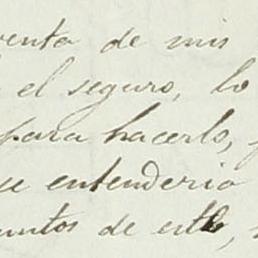 venta de mis
el seguro, lo
para hacerlo,
entenderia
untos de este,